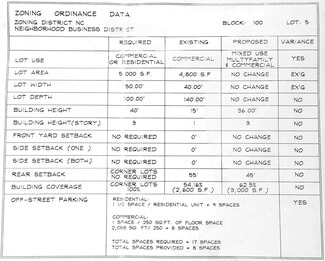 ZONING ORDINANCE DATA
ZONING DISTRICT NC
NEIGHBORHOOD BUSINESS DISTRICT
BLOCK: 100 LOT: 5
REQUIRED EXISTING PROPOSED VARIANCE
LOT USE COMMERCIAL OR RESIDENTIAL COMMERCIAL MIXED USE MULTYFAMILY & COMMERCIAL YES
LOT AREA 5 000 S.F. 4,800 S.F NO CHANGE EX'G
LOT WIDTH 50.00' 40.00' NO CHANGE EX'G
LOT DEPTH 100.00' 140.00' NO CHANGE NO
BUILDING HEIGHT 40' 15' 36.00' NO
BUILDING HEIGHT(STORY) 3 1 3 NO
FRONT YARD SETBACK NO REQUIRED 0' NO CHANGE NO
SIDE SETBACK (ONE) NO REQUIRED 0' NO CHANGE NO
SIDE SETBACK (BOTH) NO REQUIRED 0' NO CHANGE NO
REAR SETBACK CORNER LOTS NO REQUIRED 55' 45' NO
BUILDING COVERAGE CORNER LOTS 100% 54.16% (2,600 S.F.) 62.5% (3,000 S.F.) NO
OFF-STREET PARKING RESIDENTIAL: YES
1 1/2 SPACE / RESIDENTIAL UNIT = 9 SPACES
COMMERCIAL:
1 SPACE / 250 SQ.FT. OF FLOOR SPACE
2,066 SQ. FT/ 250 = 8 SPACES
TOTAL SPACES REQUIRED = 17 SPACES
TOTAL SPACES PROVIDED = 8 SPACES